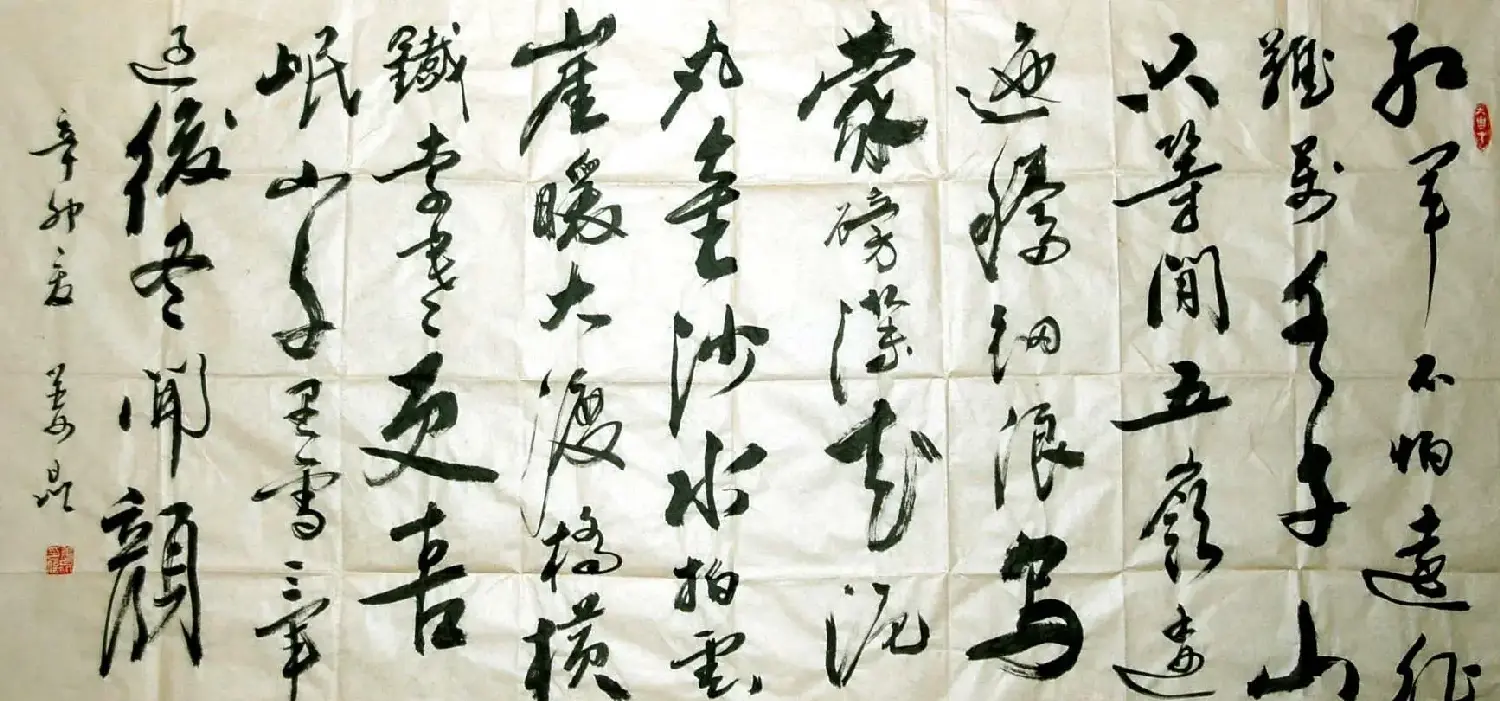 紅軍不怕遠征
難萬水千山
只等閒五嶺逶
迤騰細浪烏
蒙磅礴走泥
丸金沙水拍雲
崖暖大渡橋橫
鐵索寒更喜
岷山千里雪三軍
過後盡開顏
辛卯夏 姜